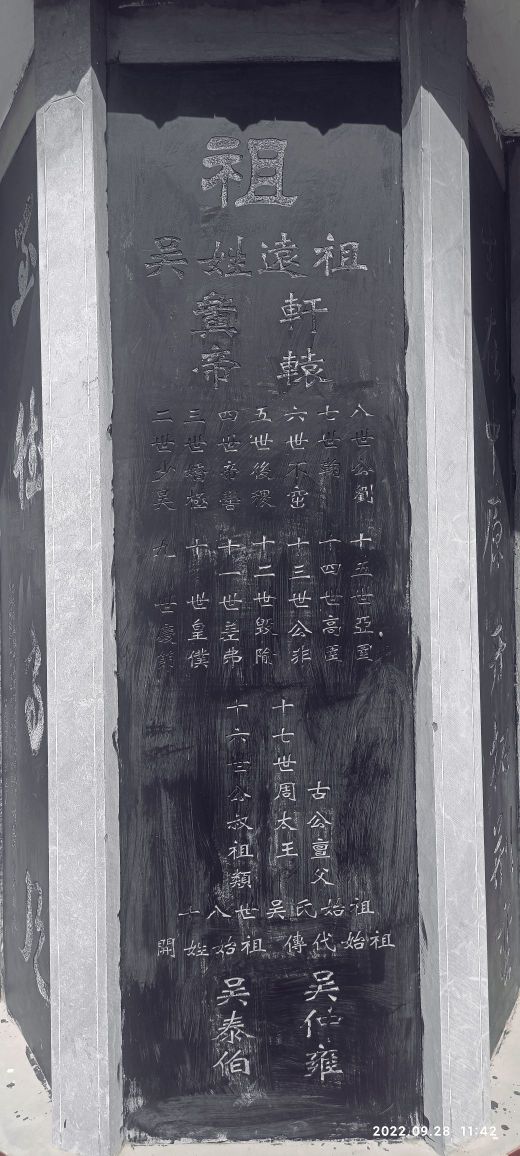 祖
吳姓遠祖
軒轅
黃帝
二世少昊
三世蟜極
四世帝嚳
五世後稷
六世不窋
七世鞠
八世公劉
九世慶節
十世皇僕
十一世差弗
十二世毀隃
十三世公非
十四世高圉
十五世亞圉
十六世公叔祖類
十七世周太王
古公亶父
十八世吳氏始祖
開姓始祖 傳代始祖
吳泰伯
吳仲雍
2022.09.28 11:42